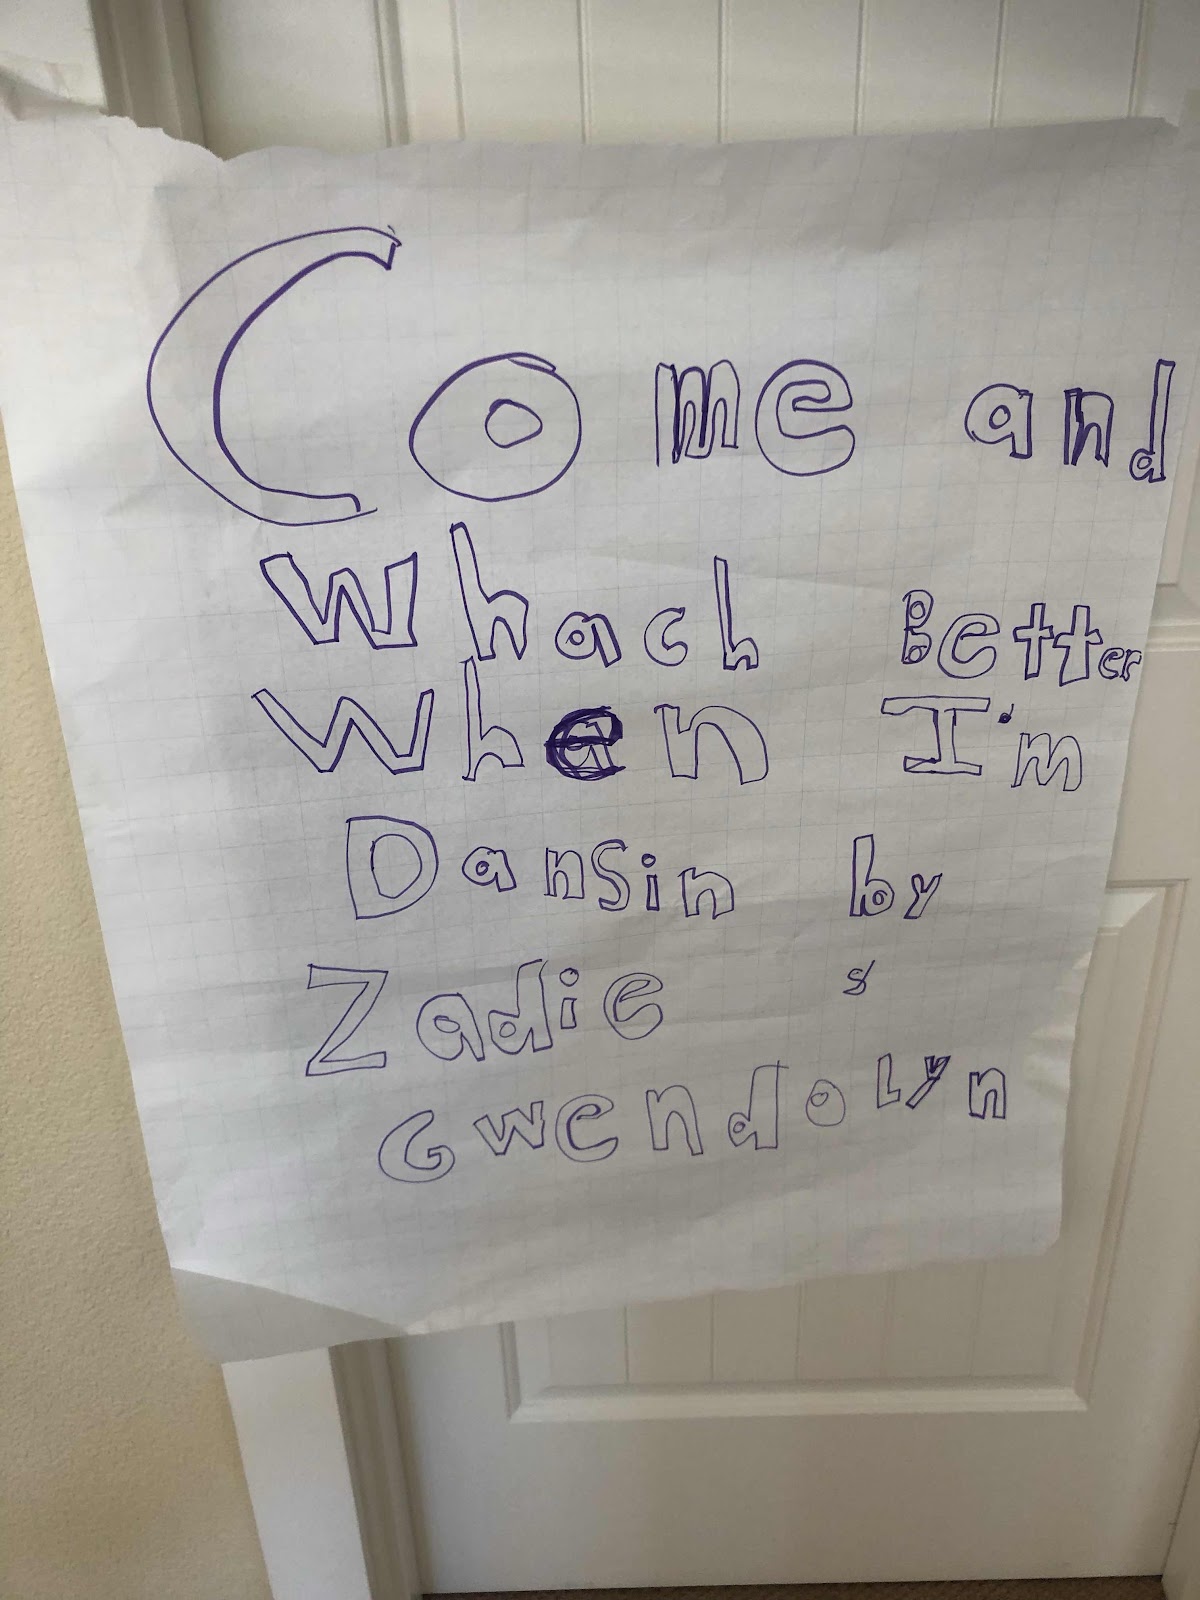 Come and
Whach Better
When I'm
Dansin by
Zadie &
Gwendolyn